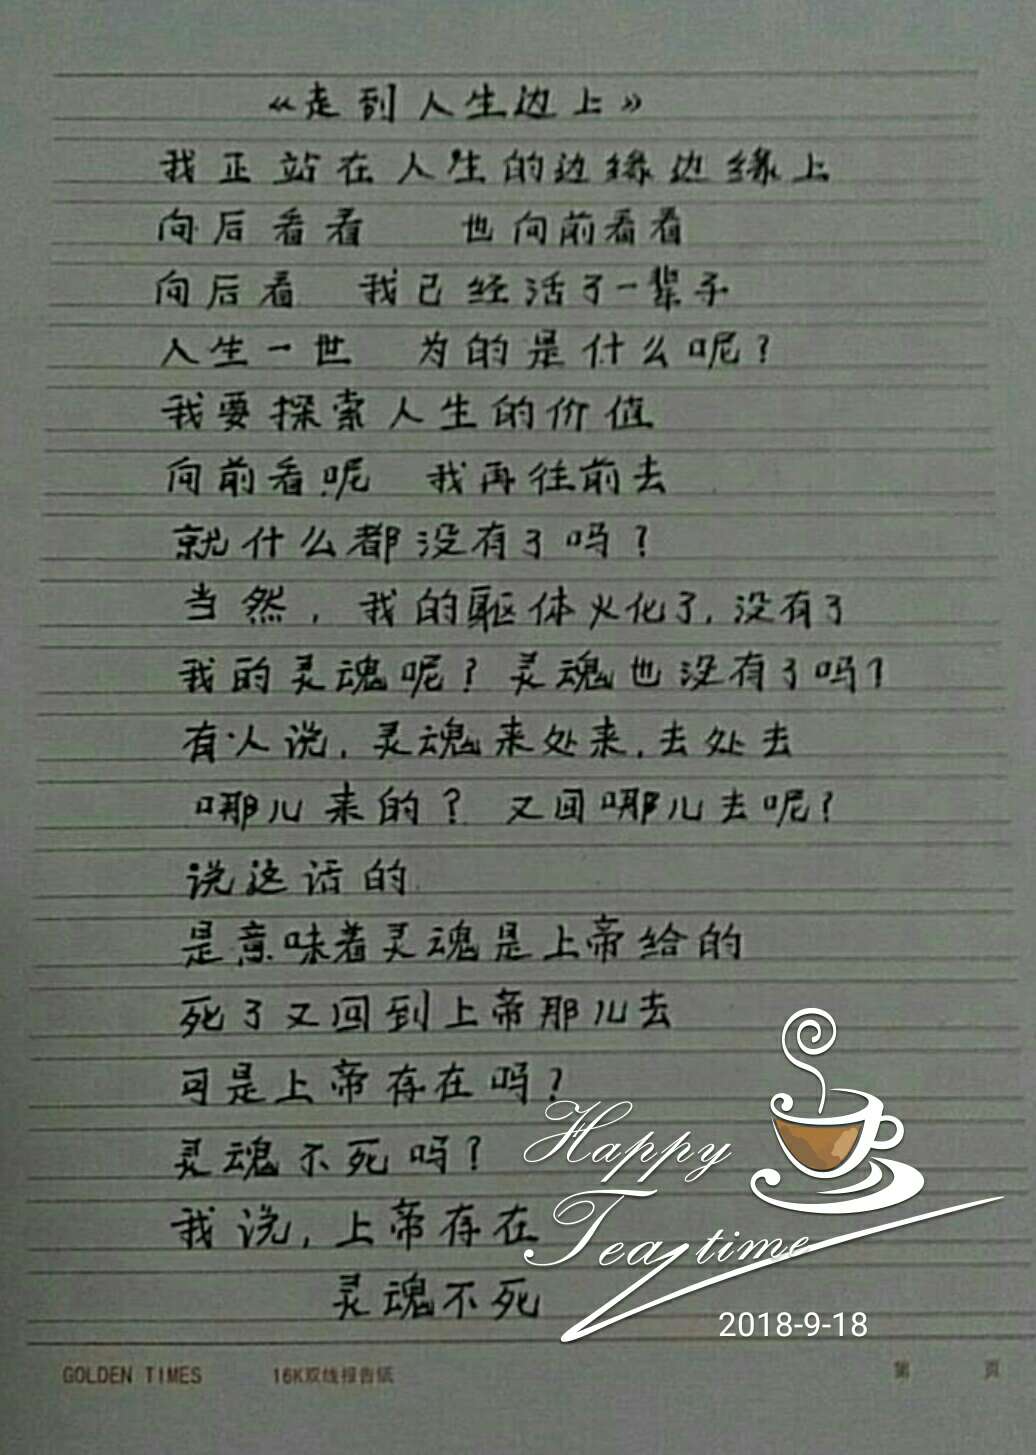 《走到人生边上》
我正站在人生的边缘边缘上
向后看看 也向前看看
向后看 我已经活了一辈子
人生一世 为的是什么呢？
我要探索人生的价值
向前看呢 我再往前去
就什么都没有了吗？
当然，我的躯体火化了，没有了
我的灵魂呢？灵魂也没有了吗？
有人说，灵魂来处来，去处去
哪儿来的？又回哪儿去呢？
说这话的
是意味着灵魂是上帝给的
死了又回到上帝那儿去
可是上帝存在吗？
灵魂不死吗？
我说，上帝存在
灵魂不死
Happy
Tea time
2018-9-18
GOLDEN TIMES 16K双线报告纸 第 页